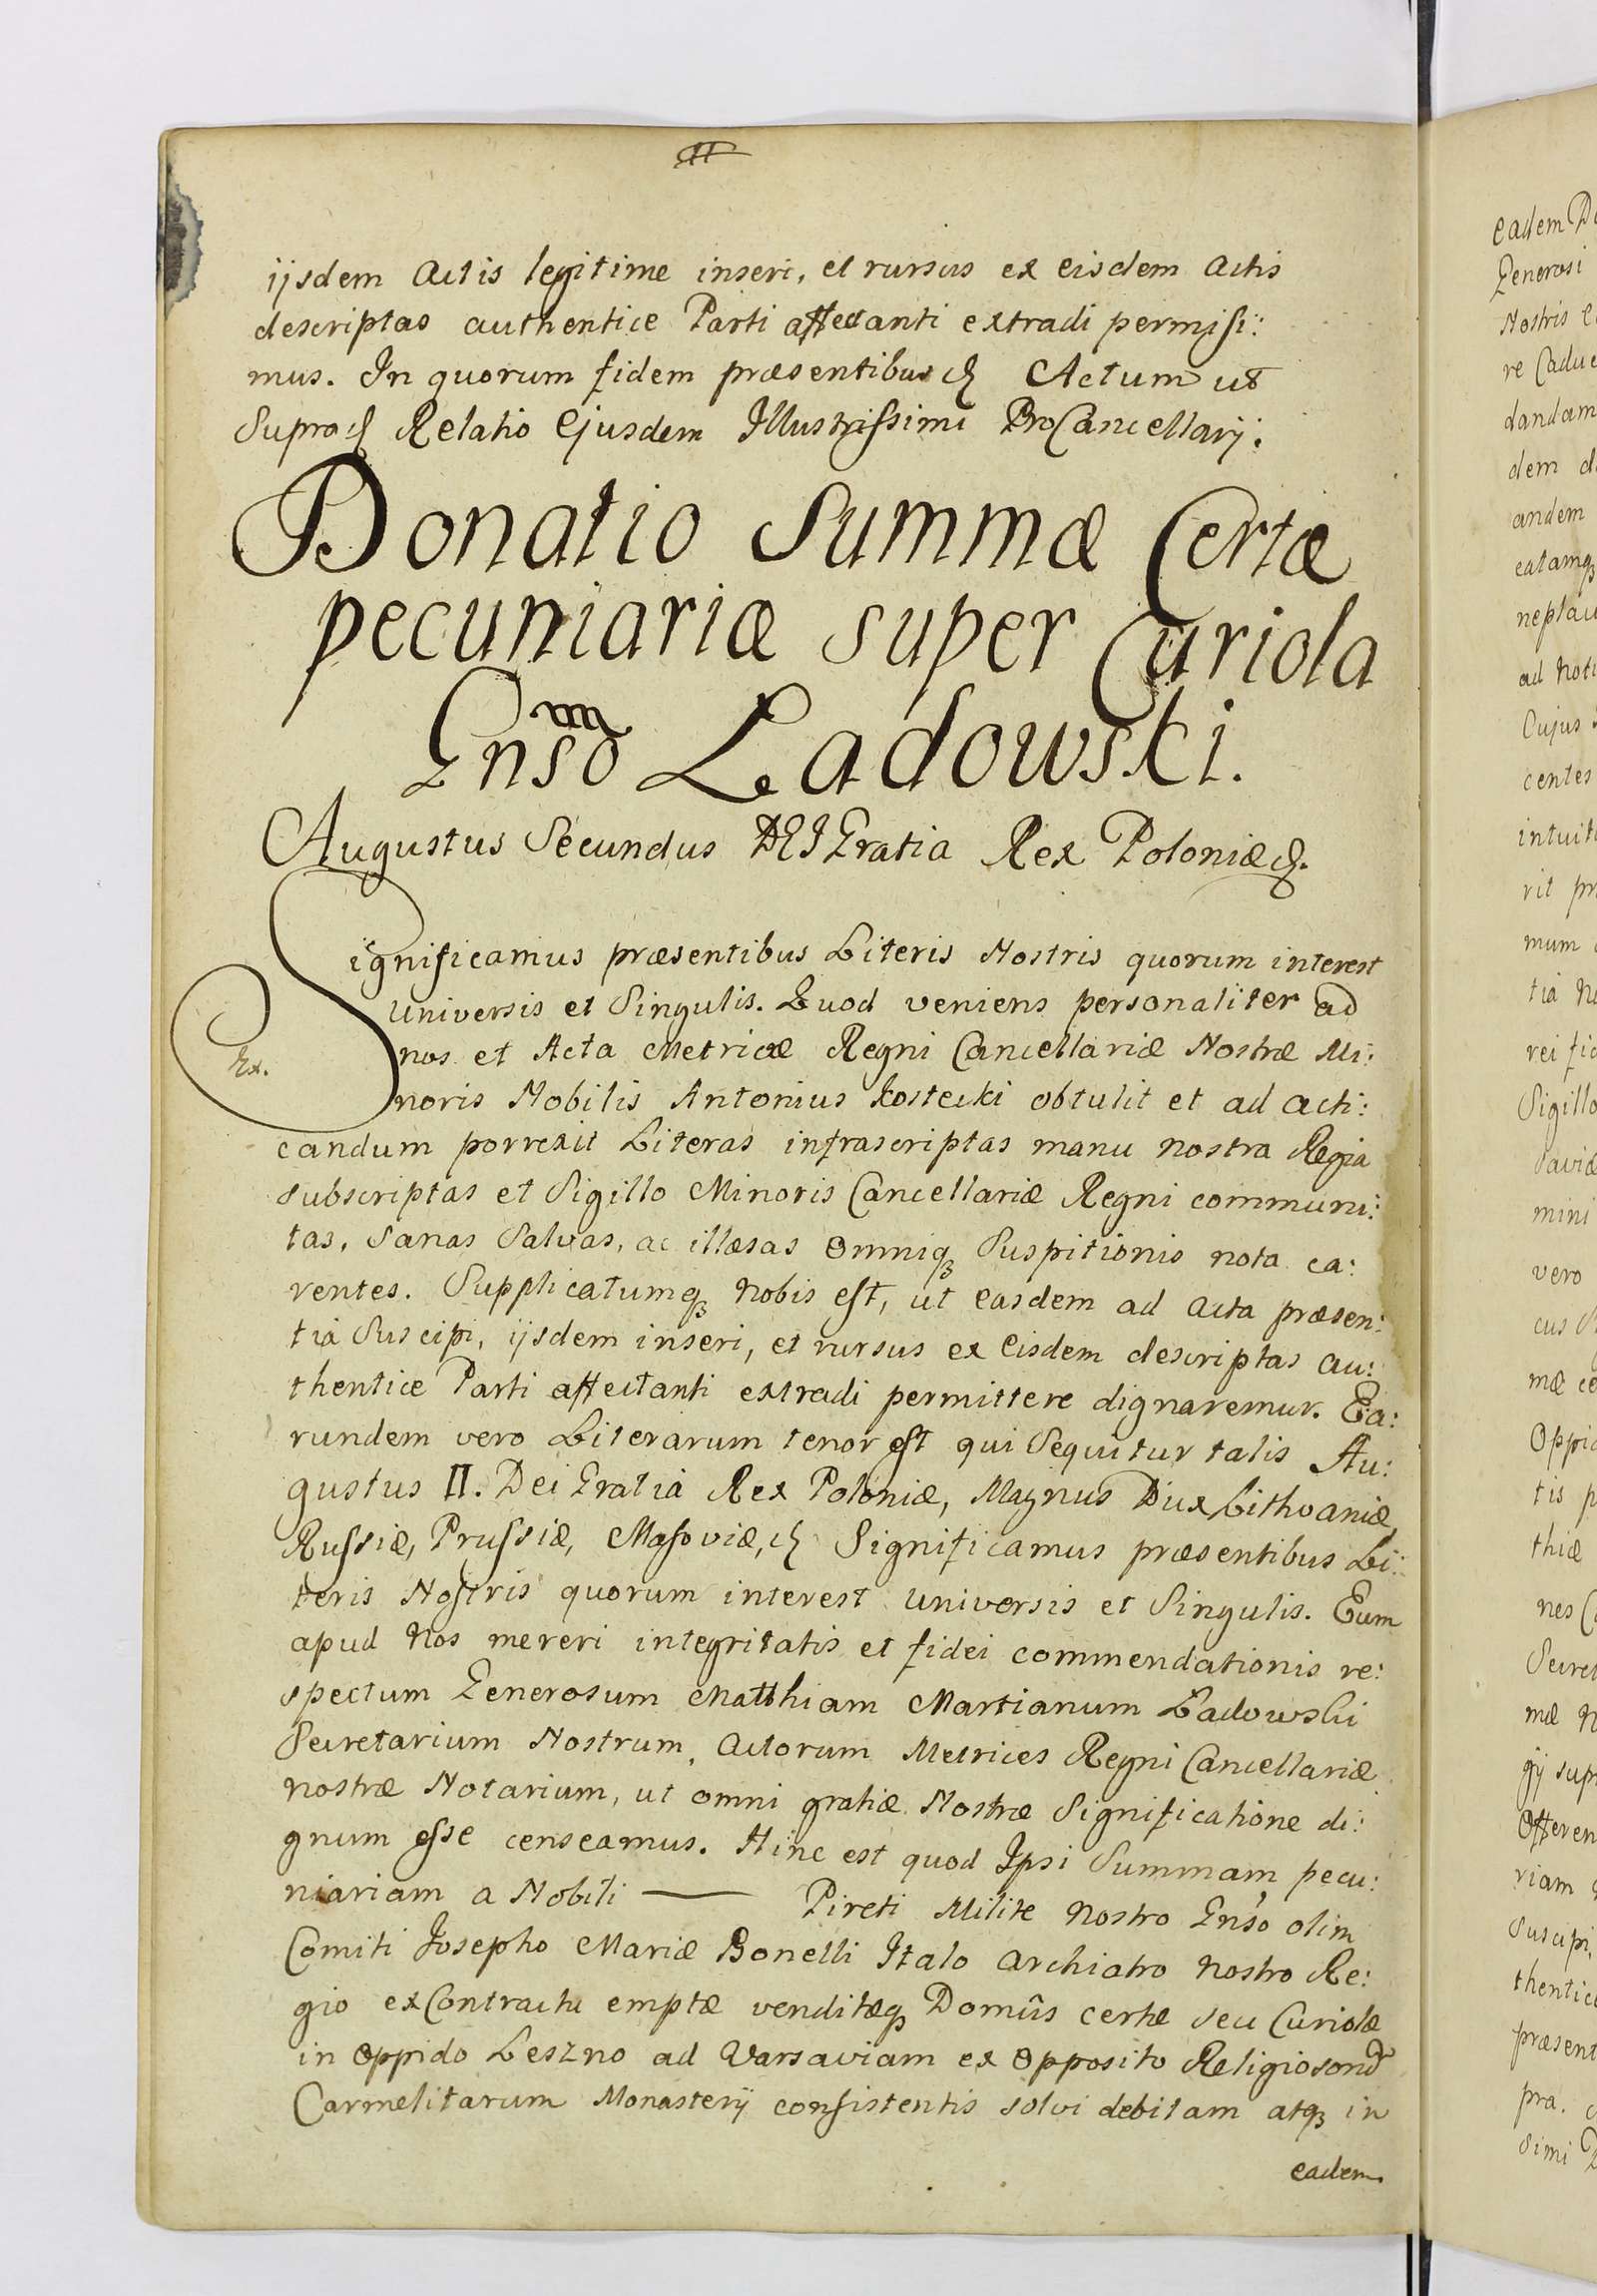 ijsdem Actis legitime inseri, et rursus ex eisdem Actis
descriptas authentice Parti affectanti extradi permisi:
mus. In quorum fidem præsentibus &c Actum ut
Supra &c Relatio Ejusdem Illustrissimi ProCancellarij.
Donatio Summæ Certæ
pecuniariæ super Curiola
Gnso Ladowski.
Augustus Secundus DEI Gratia Rex Poloniæ &c.
Significamus præsentibus Literis Nostris quorum interest
Universis et Singulis. Quod veniens personaliter ad
nos et Acta Metricæ Regni Cancellariæ Nostræ Mi:
noris Nobilis Antonius Kostecki obtulit et ad acti:
candum porrexit Literas infrascriptas manu nostra Regia
subscriptas et Sigillo Minoris Cancellariæ Regni communi:
tas, Sanas Salvas, ac illæsas omniq3 Suspitionis nota ca:
rentes. Supplicatumq3 Nobis est, ut easdem ad Acta præsen:
tia Suscipi, ijsdem inseri, et rursus ex Eisdem descriptas au:
thentice Parti affectanti extradi permittere dignaremur. Ea:
rundem vero Literarum tenor est qui Sequitur talis Au:
gustus II. Dei Gratiâ Rex Poloniæ, Magnus Dux Lithvaniæ,
Russiæ, Prussiæ, Masoviæ, &c Significamus præsentibus Li:
teris Nostris quorum interest Universis et Singulis. Eum
apud Nos mereri integritatis et fidei commendationis re:
spectum Generosum Matthiam Martianum Ladowski
Secretarium Nostrum, Actorum Metrices Regni Cancellariæ
nostræ Notarium, ut omni gratiæ Nostræ Significatione di:
gnum esse censeamus. Hinc est quod Ipsi Summam pecu:
niariam a Nobili — Pireti Milite Nostro Gnso olim
Comiti Josepho Mariæ Bonelli Italo Archiatro Nostro Re:
gio ex Contractu emptæ venditæq3 Domûs certæ seu Curiolæ
in Oppido Leszno ad Varsaviam ex Opposito Religiosorũ
Carmelitarum Monasterij consistentis solvi debitam atq3 in
eadem
eadem
Generosi
Nostris
re
dandam
dem
andem
catamq3
ad
Cujus
centes
mum
tiâ
rei
Sigillo
mini
vero
cus
mæ
tis
thiæ
nes
mæ
gij
riam
Suscipi,
pra.
simi